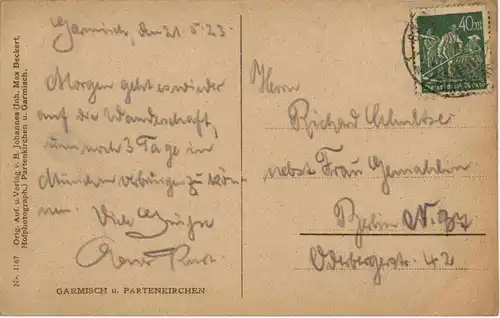 Garmisch, den 21.5.23.
Morgen geht es wieder
auf die Wanderschaft,
um noch 3 Tage in
München verbringen zu kön-
nen. Viele Grüße
GARMISCH u. PARTENKIRCHEN
Nr. 1167 Orig. Auf. u. Verlag v. B. Johannes (Inh. Max Beckert,
Hofphotograph.) Partenkirchen u. Garmisch.
40
Herrn
Richard Schultze
nebst Frau Gemahlin
Berlin N. 37
Oderbergerstr. 42